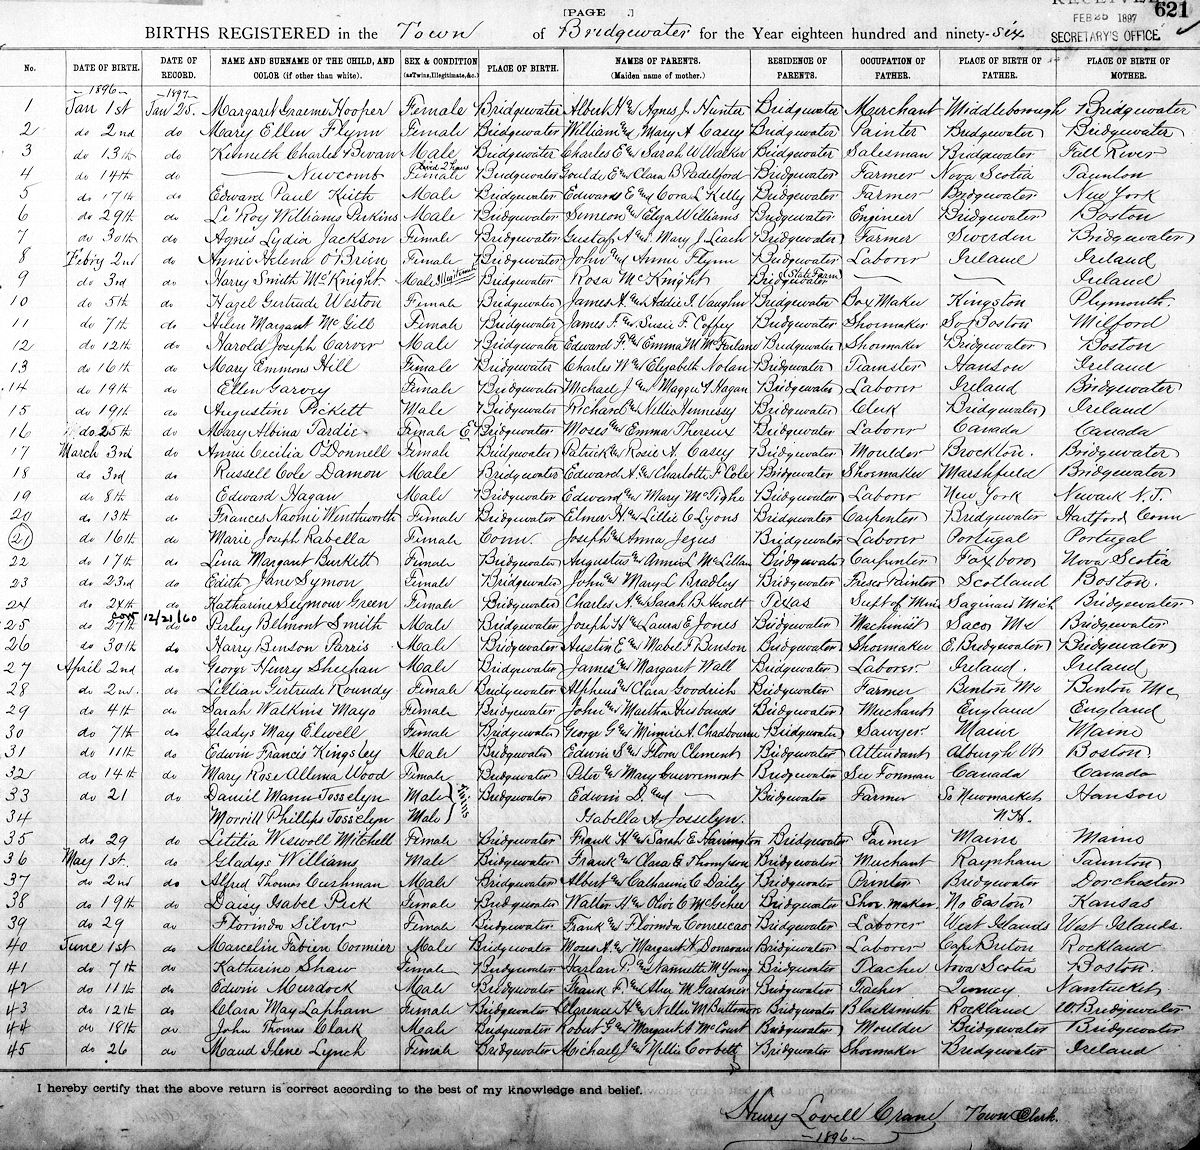 [PAGE ]
RECEIVED 621
FEB 25 1897
BIRTHS REGISTERED in the Town of Bridgewater for the Year eighteen hundred and ninety-six SECRETARY'S OFFICE.
No. DATE OF BIRTH. DATE OF RECORD. NAME AND SURNAME OF THE CHILD, AND COLOR (if other than white). SEX & CONDITION (as Twins, Illegitimate, &c.) PLACE OF BIRTH. NAMES OF PARENTS. (Maiden name of mother.) RESIDENCE OF PARENTS. OCCUPATION OF FATHER. PLACE OF BIRTH OF FATHER. PLACE OF BIRTH OF MOTHER.
1896 1897
1 Jan 1st Jan 25. Margaret Graeme Hooper Female Bridgewater Albert H and Agnes J. Hunter Bridgewater Merchant Middleborough Bridgewater
2 do 2nd do Mary Ellen Flynn Female Bridgewater William and Mary A. Casey Bridgewater Painter Bridgewater Bridgewater
3 do 13th do Kenneth Charles Bevan Male Bridgewater Charles E and Sarah W Walker Bridgewater Salesman Bridgewater Fall River
4 do 14th do — Newcomb Female Bridgewater E and Clara B Padelford Bridgewater Farmer Nova Scotia Taunton
5 do 17th do Edward Paul Keith Male Bridgewater Edward E and Cora L Kelly Bridgewater Farmer Bridgewater New York
6 do 29th do Le Roy Williams Perkins Male Bridgewater Simeon and Eliza Williams Bridgewater Engineer Bridgewater Boston
7 do 30th do Agnes Lydia Jackson Female Bridgewater Gustaf A and Mary J Leach Bridgewater Farmer Sweeden Bridgewater
8 Febry 2nd do Annie Helena O'Brien Female Bridgewater John and Annie Flynn Bridgewater Laborer Ireland Ireland
9 do 3rd do Harry Smith McKnight Male Illegitimate Bridgewater Rosa McKnight Bridgewater (State Farm) — — Ireland
10 do 5th do Hazel Gertrude Weston Female Bridgewater James A. and Addie I. Vaughn Bridgewater Box Maker Kingston Plymouth.
11 do 7th do Helen Margaret McGill Female Bridgewater James F. and Susie F. Coffey Bridgewater Shoemaker So Boston Milford
12 do 12th do Harold Joseph Carver Male Bridgewater Edward F. and Emma M McFarland Bridgewater Shoemaker Bridgewater Boston
13 do 16th do Mary Emmons Hill Female Bridgewater Charles W and Elizabeth Nolan Bridgewater Teamster Hanson Ireland
14 do 19th do Ellen Garvey Female Bridgewater Michael J and Maggie F. Hagan Bridgewater Laborer Ireland Bridgewater
15 do 19th do Augustine Pickett Male Bridgewater Richard and Nellie Hennessy Bridgewater Clerk Bridgewater Ireland
16 do 25th do Mary Albina Tardie Female E Bridgewater Moses and Emma Thereux Bridgewater Laborer Canada Canada
17 March 3rd do Annie Cecilia O'Donnell Female Bridgewater Patrick and Rosie A. Casey Bridgewater Moulder Brockton. Bridgewater
18 do 3rd do Russell Cole Damon Male Bridgewater Edward A. and Charlott F Cole Bridgewater Shoemaker Marshfield Bridgewater
19 do 8th do Edward Hagan Male Bridgewater Edward and Mary McTighe Bridgewater Laborer New York Newark N.J.
20 do 13th do Frances Naomi Wenthworth Female Bridgewater Elmer H. and Lillie C Lyons Bridgewater Carpenter Bridgewater Hartford Conn
21 do 16th do Marie Joseph Rabella Female Conn. Joseph and Anna Jesus Bridgewater Laborer Portugal Portugal
22 do 17th do Lena Margaret Burkett Female Bridgewater Augustus and Annie L McLellan Bridgewater Carpenter Foxboro Nova Scotia
23 do 23rd do Edith Jane Symon Female Bridgewater John and Mary L Bradley Bridgewater Fresco Painter Scotland Boston.
24 do 24th do Katharine Seymour Green Female Bridgewater Charles A. and Sarah B. Hewett Texas Supt of Mine Saginaw Mich Bridgewater
25 do 27th cor 12/21/60 do Perley Belmont Smith Male Bridgewater Joseph H and Laura E. Jones Bridgewater Machinist Saco Me Bridgewater
26 do 30th do Harry Benson Parris Male Bridgewater Austin E and Mabel F Benson Bridgewater Shoemaker E. Bridgewater Bridgewater
27 April 2nd do George Henry Sheehan Male Bridgewater James and Margaret Wall Bridgewater Laborer Ireland. Ireland
28 do 2nd. do Lillian Gertrude Roundy Female Bridgewater Alpheus and Clara Goodrich Bridgewater Farmer Benton Me Benton Me
29 do 4th do Sarah Watkins Mayo Female Bridgewater John and Martha Husbands Bridgewater Merchant England England
30 do 7th do Gladys May Elwell Female Bridgewater George G and Minnie A. Chadbourne Bridgewater Sawyer Maine Maine
31 do 11th do Edwin Francis Kingsley Male Bridgewater Edwin S. and Flora Clement Bridgewater Attendant Alburgh Vt Boston
32 do 14th do Mary Rose Allma Wood Female Bridgewater Peter and Mary Guevremont Bridgewater Sec Forman Canada Canada
33 do 21 do Daniel Mann Josselyn Male Twins Bridgewater Edwin D. and — Bridgewater Farmer So Newmarket Hanson
34 Morrill Phillips Josselyn Male Isabella A. Josselyn. N.H.
35 do 29 do Letitia Wiswell Mitchell Female Bridgewater Frank H and Sarah E Harrington Bridgewater Farmer Maine Maine
36 May 1st. do Gladys Williams Male Bridgewater Frank and Clara E Thompson Bridgewater Merchant Raynham Taunton
37 do 2nd do Alfred Thomas Cushman Male Bridgewater Albert and Catharine C. Daily Bridgewater Printer Bridgewater Dorchester
38 do 19th do Daisy Isabel Peck Female Bridgewater Walter H and Olive C McGehee Bridgewater Shoe maker No Easton Kansas
39 do 29 do Florinda Silver Female Bridgewater Frank and Florinda Conceicao Bridgewater Laborer West Islands West Islands.
40 June 1st do Marcelin Fabien Cormier Male Bridgewater Moses A. and Margaret A. Donovan Bridgewater Laborer Cape Breton Rockland
41 do 7th do Katherine Shaw Female Bridgewater Harlan P. and Nannette M Young Bridgewater Teacher Nova Scotia Boston.
42 do 11th do Edwin Murdock Male Bridgewater Frank F. and Alice M. Gardner Bridgewater Teacher Quincy Nantucket
43 do 12th do Clara May Lapham Female Bridgewater Clarence H and Nellie M Buttermore Bridgewater Blacksmith Rockland W. Bridgewater
44 do 18th do John Thomas Clark Male Bridgewater Robert G and Margaret A McCourt Bridgewater Moulder Bridgewater Bridgewater
45 do 26 do Maud Ilene Lynch Female Bridgewater Michael J and Nellie Corbett Bridgewater Shoemaker Bridgewater Ireland
I hereby certify that the above return is correct according to the best of my knowledge and belief.
Henry Lovell Crane Town Clerk.
1896